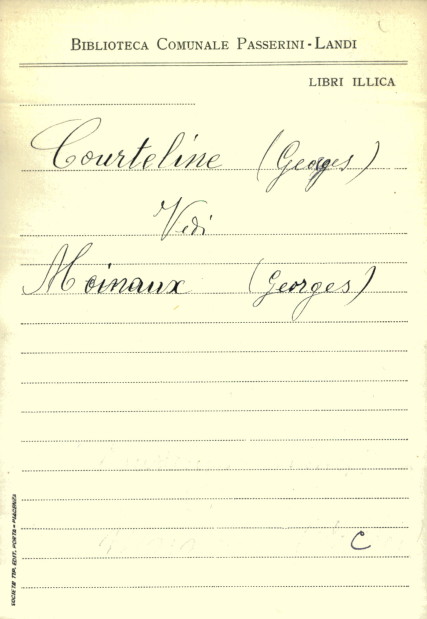 BIBLIOTECA COMUNALE PASSERINI-LANDI
LIBRI ILLICA
Courteline (Georges)
Vedi
Moinaux (Georges)
C